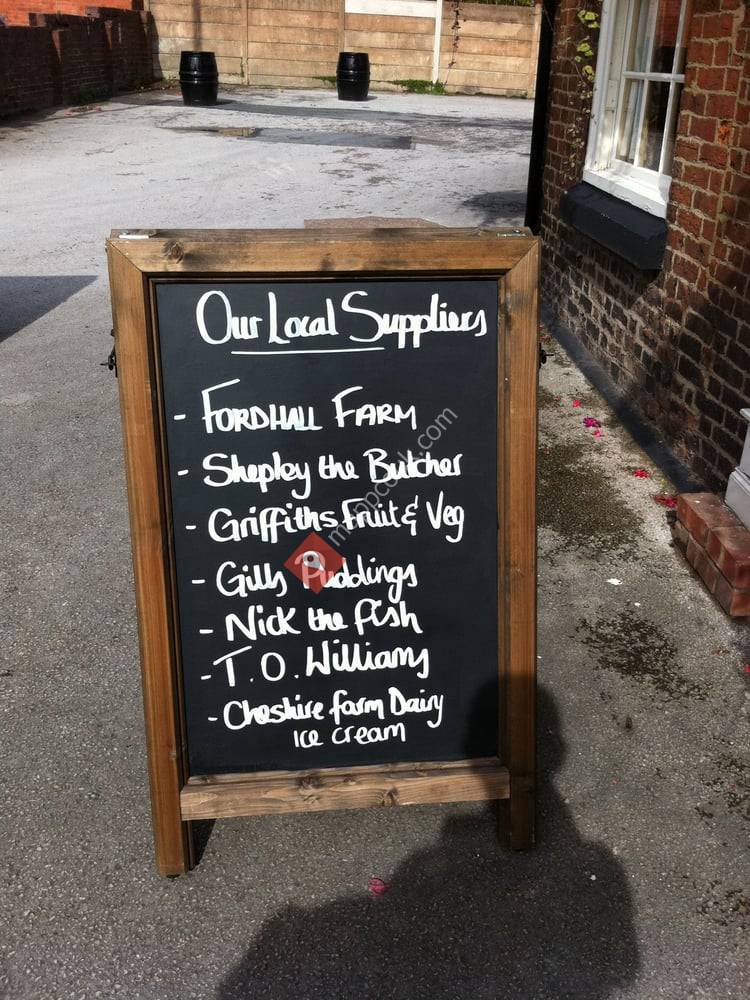 Our Local Suppliers
- FORDHALL FARM
- Shepley the Butcher
- Griffiths Fruit & Veg
- Gills Puddings
- Nick the fish
- T.O. Williams
- Cheshire farm Dairy
ice cream
mappock.com